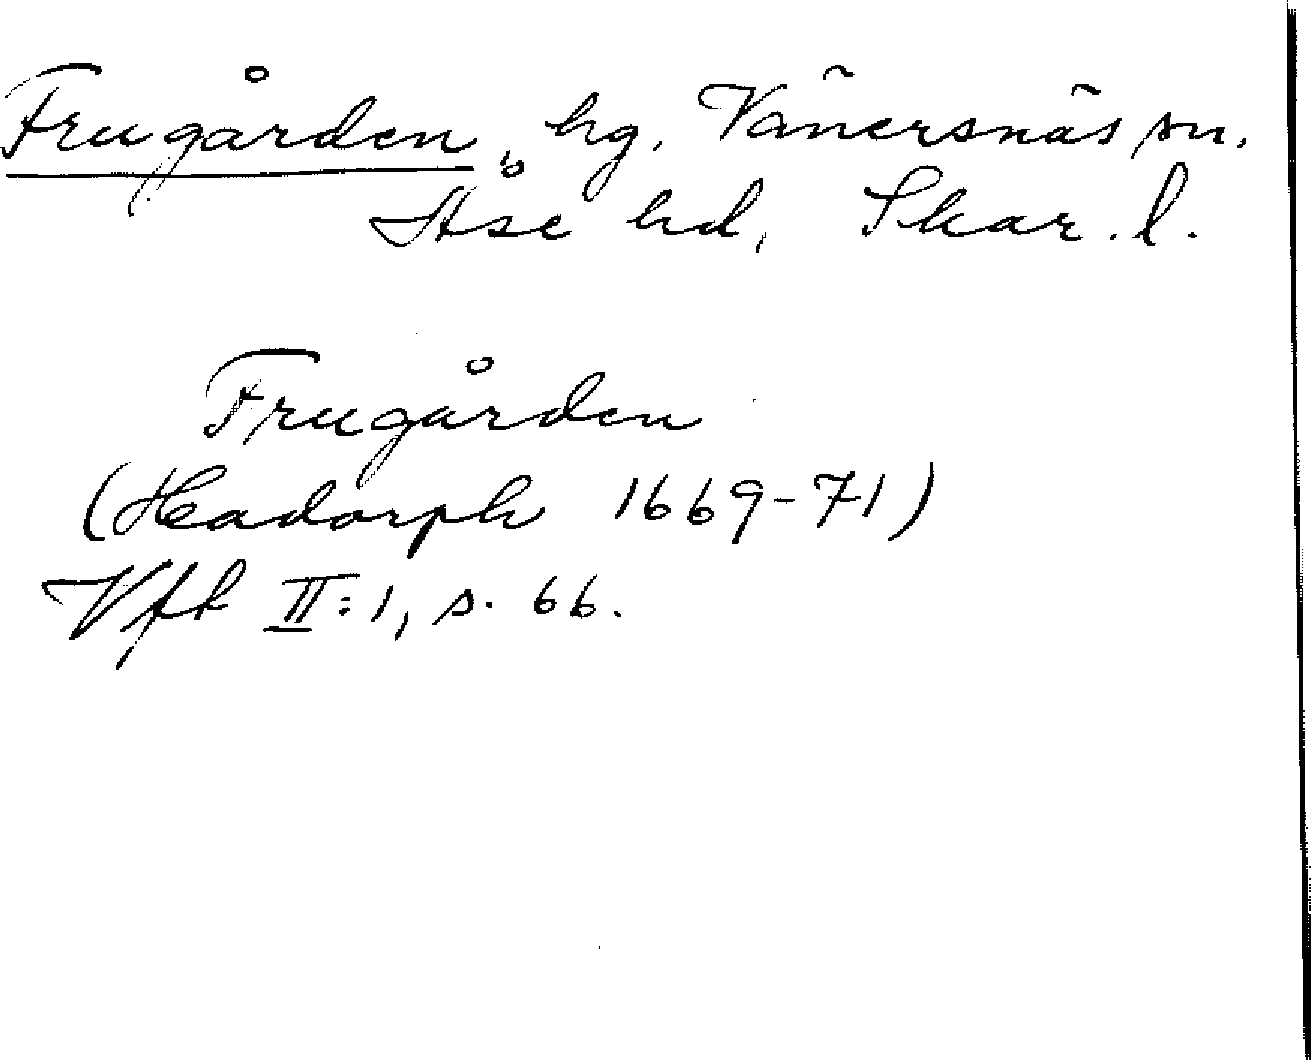 Frugården, hg. Vänersnäs sn.
Åse hd, Skar. l.
Frugården
(Hadorph 1669-71)
Vft II:1, s. 66.